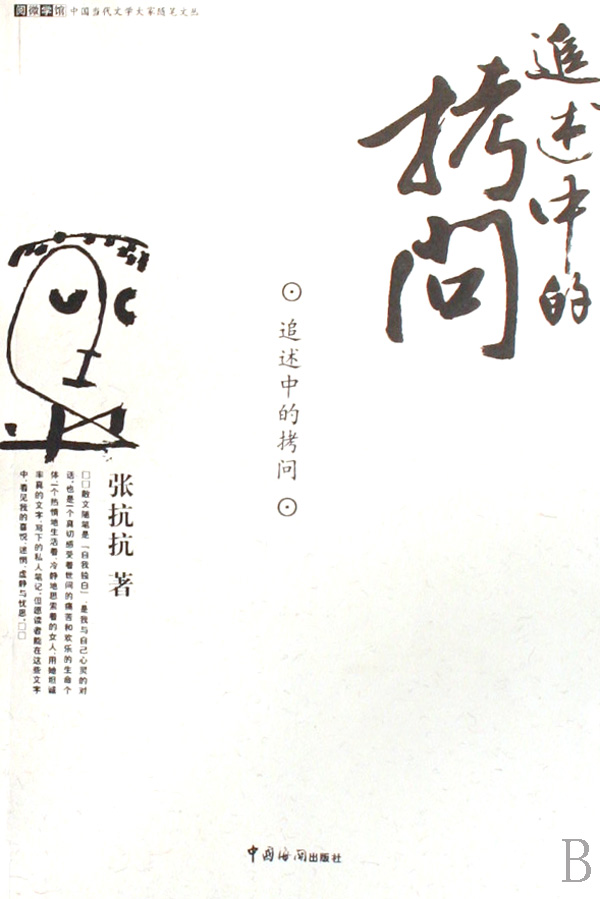 阅微学馆 中国当代文学大家随笔文丛
追述中的
拷问
追述中的拷问
张抗抗 著
□□散文随笔是“自我独白”，是我与自己心灵的对
话，也是一个真切感受着世间的痛苦和欢乐的生命个
体，一个热情地生活着，冷静地思索着的女人，用她坦诚
率真的文字，写下的私人笔记，但愿读者能在这些文字
中，看见我的喜悦、迷惘、虚静与忧思。□□
中国海关出版社
B